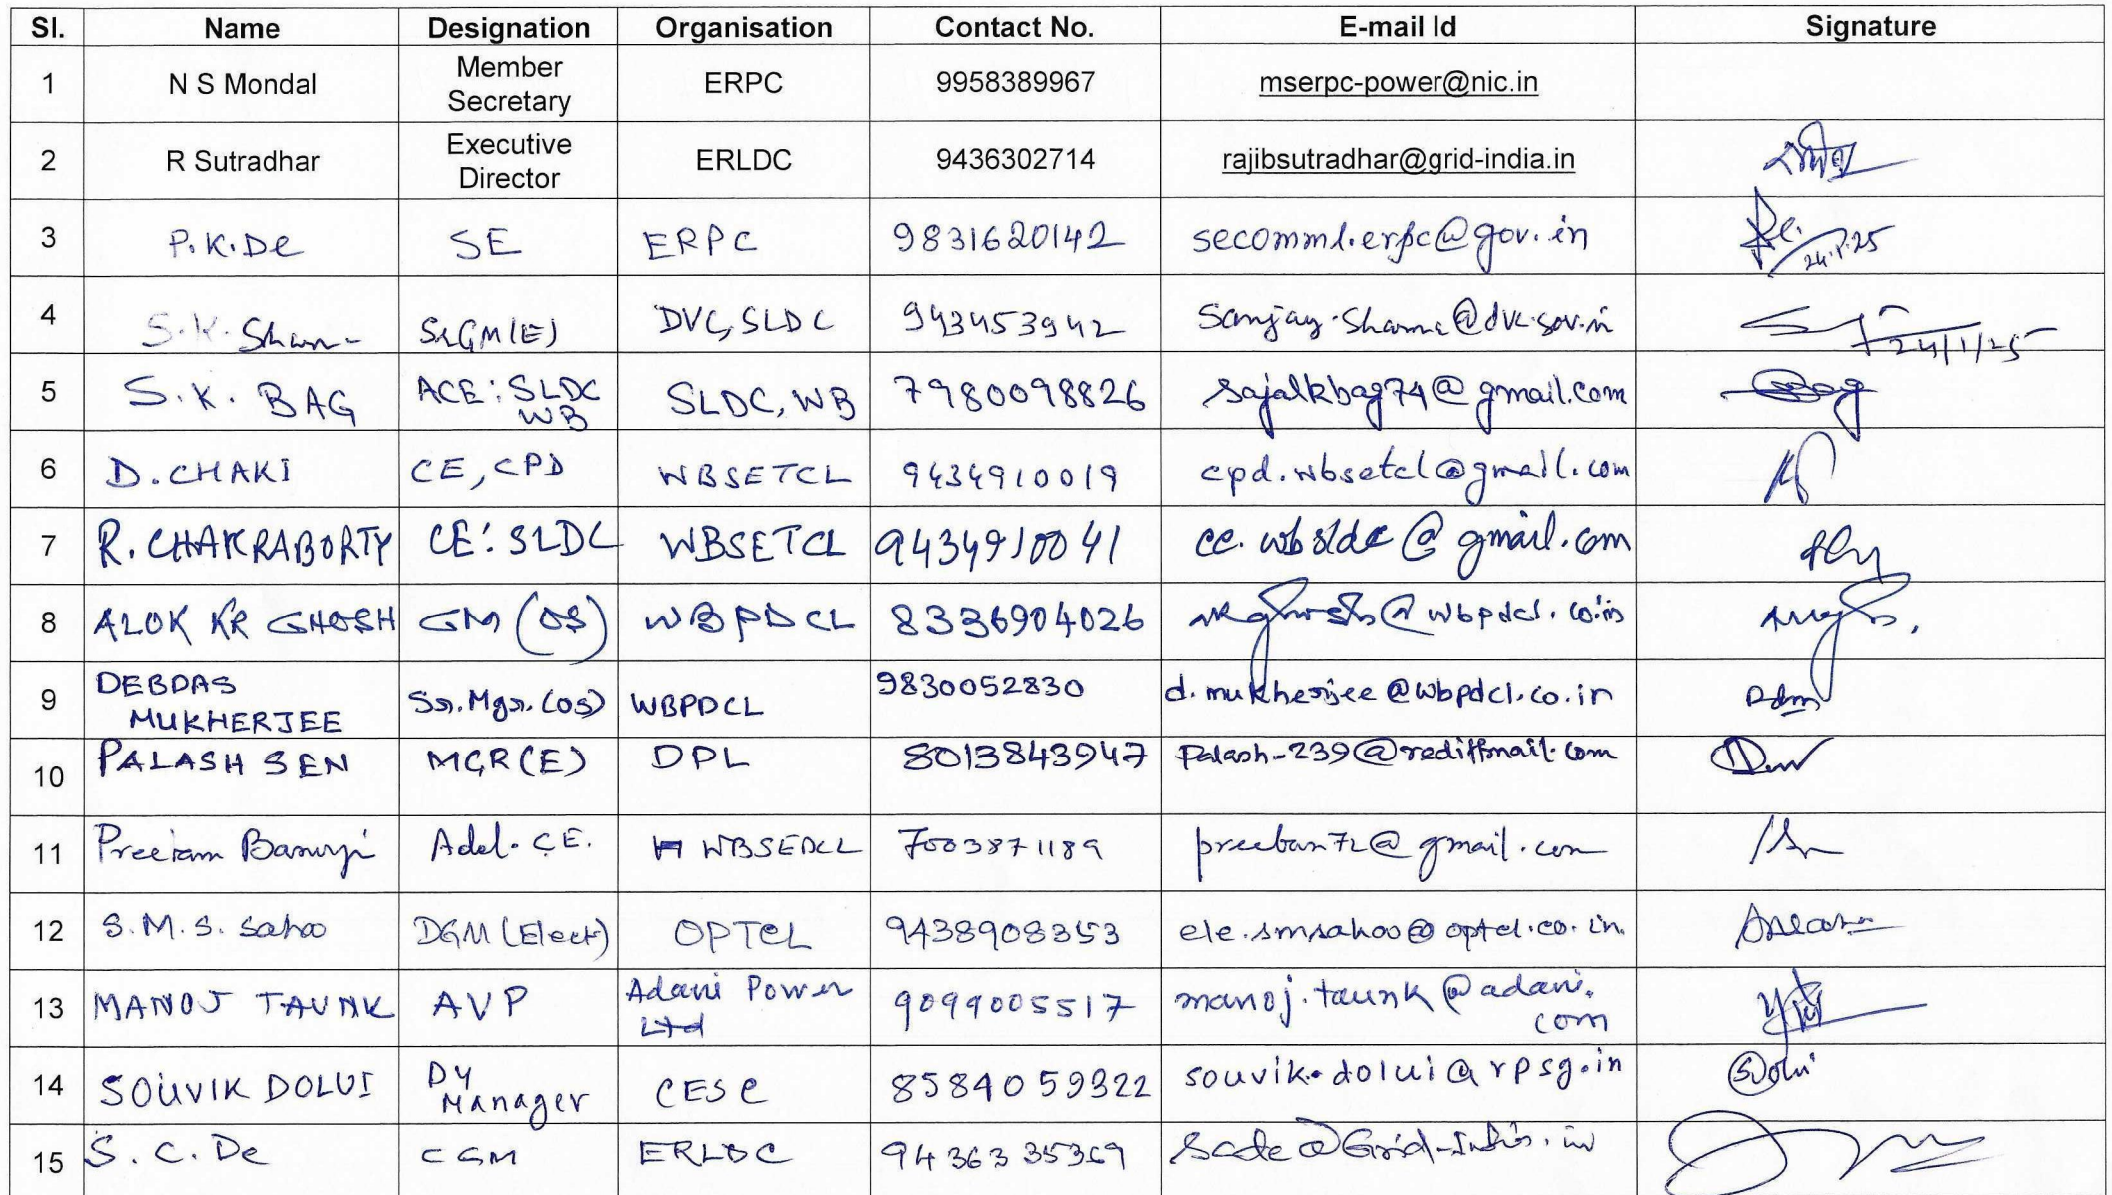 Sl. Name Designation Organisation Contact No. E-mail Id Signature
1 N S Mondal Member Secretary ERPC 9958389967 mserpc-power@nic.in
2 R Sutradhar Executive Director ERLDC 9436302714 rajibsutradhar@grid-india.in
3 P.K.De SE ERPC 9831620142 secomml.erpc@gov.in 24.1.25
4 S.K. Sharma Sr.GM(E) DVC, SLDC 943453942 Sanjay.Sharma@dvc.gov.in 24/1/25
5 S.K. BAG ACE: SLDC WB SLDC, WB 7980098826 sajalkbag74@gmail.com
6 D. CHAKI CE, CPD WBSETCL 9434910019 cpd.wbsetcl@gmail.com
7 R. CHAKRABORTY CE: SLDC WBSETCL 9434910041 ce.wbsldc@gmail.com
8 ALOK KR GHOSH GM (OS) WBPDCL 8336904026 akghosh@wbpdcl.co.in
9 DEBDAS MUKHERJEE Sr. Mgr. (OS) WBPDCL 9830052830 d.mukherjee@wbpdcl.co.in
10 PALASH SEN MGR(E) DPL 8013843947 palash-239@rediffmail.com
11 Preetam Banerji Addl. C.E. WBSEDCL 7003871189 preeban72@gmail.com
12 S.M.S. Sahoo DGM (Elect) OPTCL 9438908353 ele.smsahoo@optcl.co.in.
13 MANOJ TAUNK AVP Adani Power Ltd 9099005517 manoj.taunk@adani.com
14 SOUVIK DOLUI Dy Manager CESC 8584059322 souvik.dolui@rpsg.in
15 S. C. De CGM ERLDC 9436335369 scde@Grid-India.in